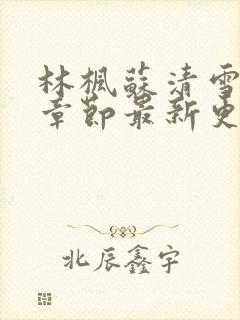 林枫苏清雪
章节最新更
北辰鑫宇